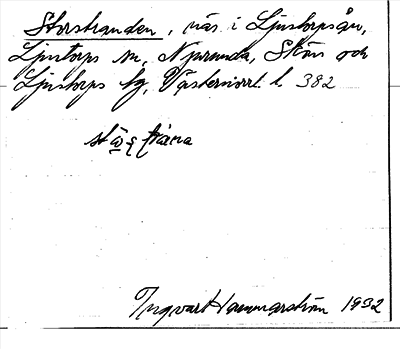 Storstranden, näs i Ljustorpsån,
Ljustorps sn, Njurunda, Sköns och
Ljustorps tg, Västernorrl. l. 382
Ingvar Hammarström 1932